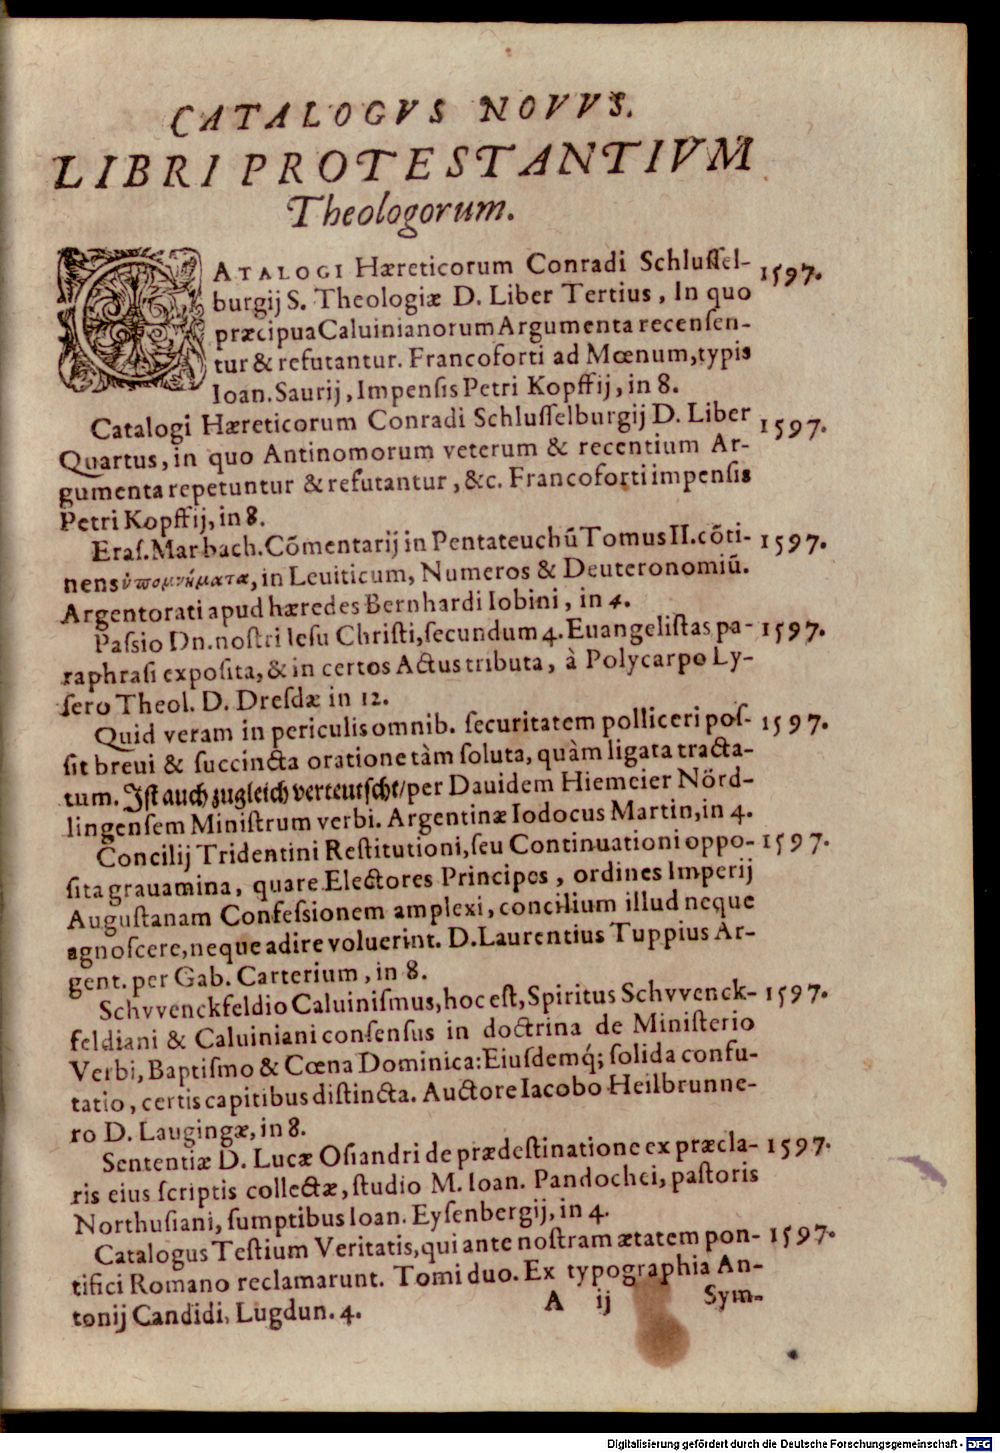 CATALOGVS NOVVS.
LIBRI PROTESTANTIVM
Theologorum.
CATALOGI Hæreticorum Conradi Schlusſel- 1597.
burgij S. Theologiæ D. Liber Tertius, In quo
præcipua Caluinianorum Argumenta recenſen-
tur & refutantur. Francoforti ad Mœnum, typis
Ioan. Saurij, Impenſis Petri Kopffij, in 8.
Catalogi Hæreticorum Conradi Schluſſelburgij D. Liber 1597.
Quartus, in quo Antinomorum veterum & recentium Ar-
gumenta repetuntur & refutantur, &c. Francoforti impenſis
Petri Kopffij, in 8.
Eraſ. Marbach. Cõmentarij in Pentateuchũ Tomus II. cõti- 1597.
nens ὑπομνήματα, in Leuiticum, Numeros & Deuteronomiũ.
Argentorati apud hæredes Bernhardi Iobini, in 4.
Paſsio Dn. noſtri Ieſu Chriſti, ſecundum 4. Euangeliſtas pa- 1597.
raphraſi expoſita, & in certos Actus tributa, à Polycarpo Ly-
ſero Theol. D. Dreſdæ in 12.
Quid veram in periculis omnib. ſecuritatem polliceri poſ- 1597.
ſit breui & ſuccincta oratione tàm ſoluta, quàm ligata tracta-
tum. Iſt auch zugleich verteutſcht/ per Dauidem Hiemeier Nörd-
lingenſem Miniſtrum verbi. Argentinæ Iodocus Martin, in 4.
Concilij Tridentini Reſtitutioni, ſeu Continuationi oppo- 1597.
ſita grauamina, quare Electores Principes, ordines Imperij
Auguſtanam Confeſsionem amplexi, concilium illud neque
agnoſcere, neque adire voluerint. D. Laurentius Tuppius Ar-
gent. per Gab. Carterium, in 8.
Schvvenckfeldio Caluiniſmus, hoc eſt, Spiritus Schvvenck- 1597.
feldiani & Caluiniani conſenſus in doctrina de Miniſterio
Verbi, Baptiſmo & Cœna Dominica: Eiuſdemq́; ſolida confu-
tatio, certis capitibus diſtincta. Auctore Iacobo Heilbrunne-
ro D. Laugingæ, in 8.
Sententiæ D. Lucæ Oſiandri de prædeſtinatione ex præcla- 1597.
ris eius ſcriptis collectæ, ſtudio M. Ioan. Pandochei, paſtoris
Northuſiani, ſumptibus Ioan. Eyſenbergij, in 4.
Catalogus Teſtium Veritatis, qui ante noſtram ætatem pon- 1597.
tifici Romano reclamarunt. Tomi duo. Ex typographia An-
tonij Candidi, Lugdun. 4.
A ij Sym-
Digitalisierung gefördert durch die Deutsche Forschungsgemeinschaft - DFG